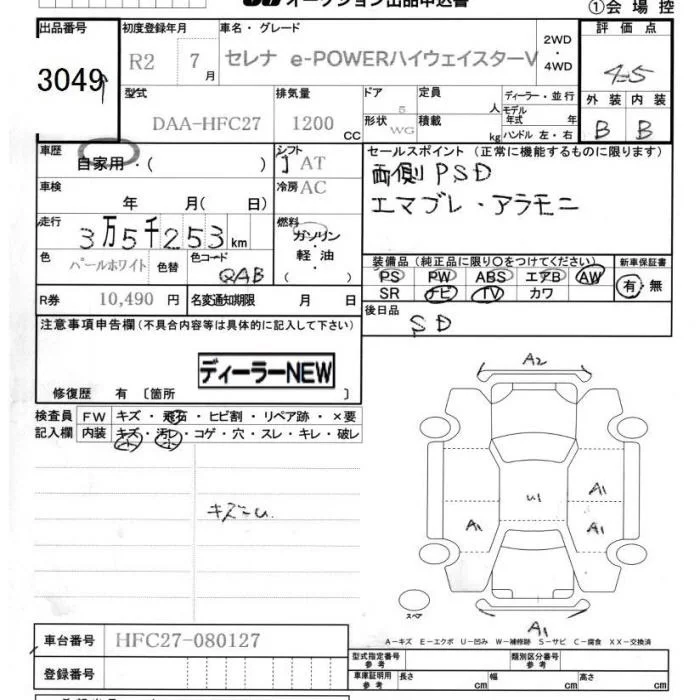 オークション出品申込書
①会場控
出品番号 初度登録年月 車名・グレード 評価点
3049 R2 7月 セレナ e-POWERハイウェイスターV 2WD・4WD 4.5
型式 排気量 ドア 定員 ディーラー・並行 外装 内装
DAA-HFC27 1200 CC 5 人 モデル年式 年 B B
形状 WG 積載 kg ハンドル 左・右
車歴 自家用・( ) シフト AT セールスポイント (正常に機能するものに限ります)
両側PSD
車検 年 月( 日) 冷房 AC エマブレ・アラモニ
走行 3万5千253km 燃料 ガソリン・軽油・( )
色 パールホワイト 色替 色コード QAB 装備品 (純正品に限り○をつけてください) 新車保証書
PS PW ABS エアB AW 有・無
R券 10,490円 名変通知期限 月 日 SR ナビ TV カワ
注意事項申告欄(不具合内容等は具体的に記入して下さい) 後日品
SD
ディーラーNEW
修復歴 有 〔箇所 〕
検査員 FW キズ・飛石・ヒビ割・リペア跡・×要
記入欄 内装 キズ・汚レ・コゲ・穴・スレ・キレ・破レ
小 小
A2
キズ
U1 A1
A1 A1
スペア
A1
A-キズ E-エクボ U-凹み W-補修跡 S-サビ C-腐食 XX-交換済
車台番号 HFC27-080127
型式指定番号 参考 類別区分番号 参考
登録番号 車庫証明用 参考 長さ cm 幅 cm 高さ cm